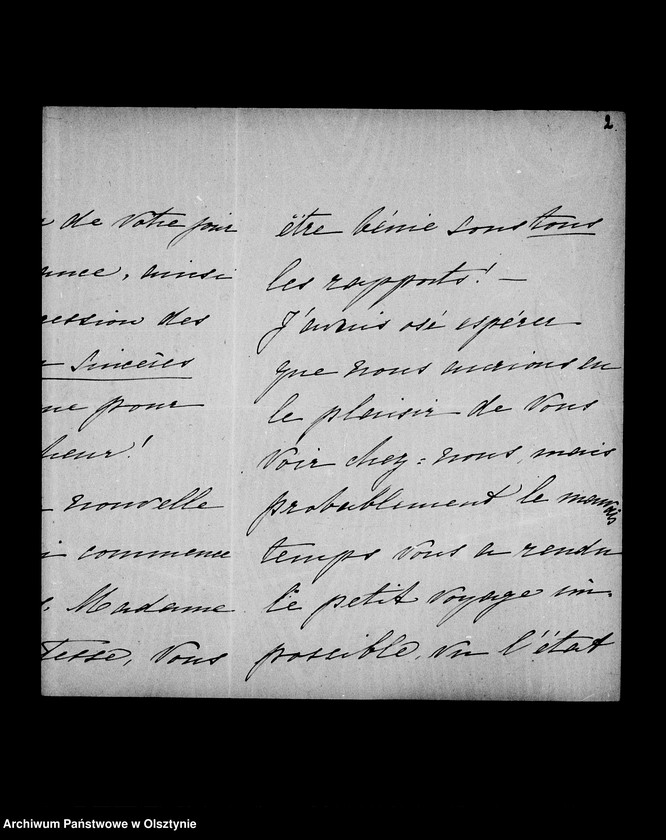 2
de votre jour
ance, ainsi
ression des
sincères
pour
heur!
nouvelle
commence
Madame
tesse, vous
être bénie sous tous
les rapports! —
J'avais osé espérer
que nous aurions eu
le plaisir de vous
voir chez-nous, mais
probablement le mauvais
temps vous a rendu
le petit voyage im-
possible, vu l'état
Archiwum Państwowe w Olsztynie